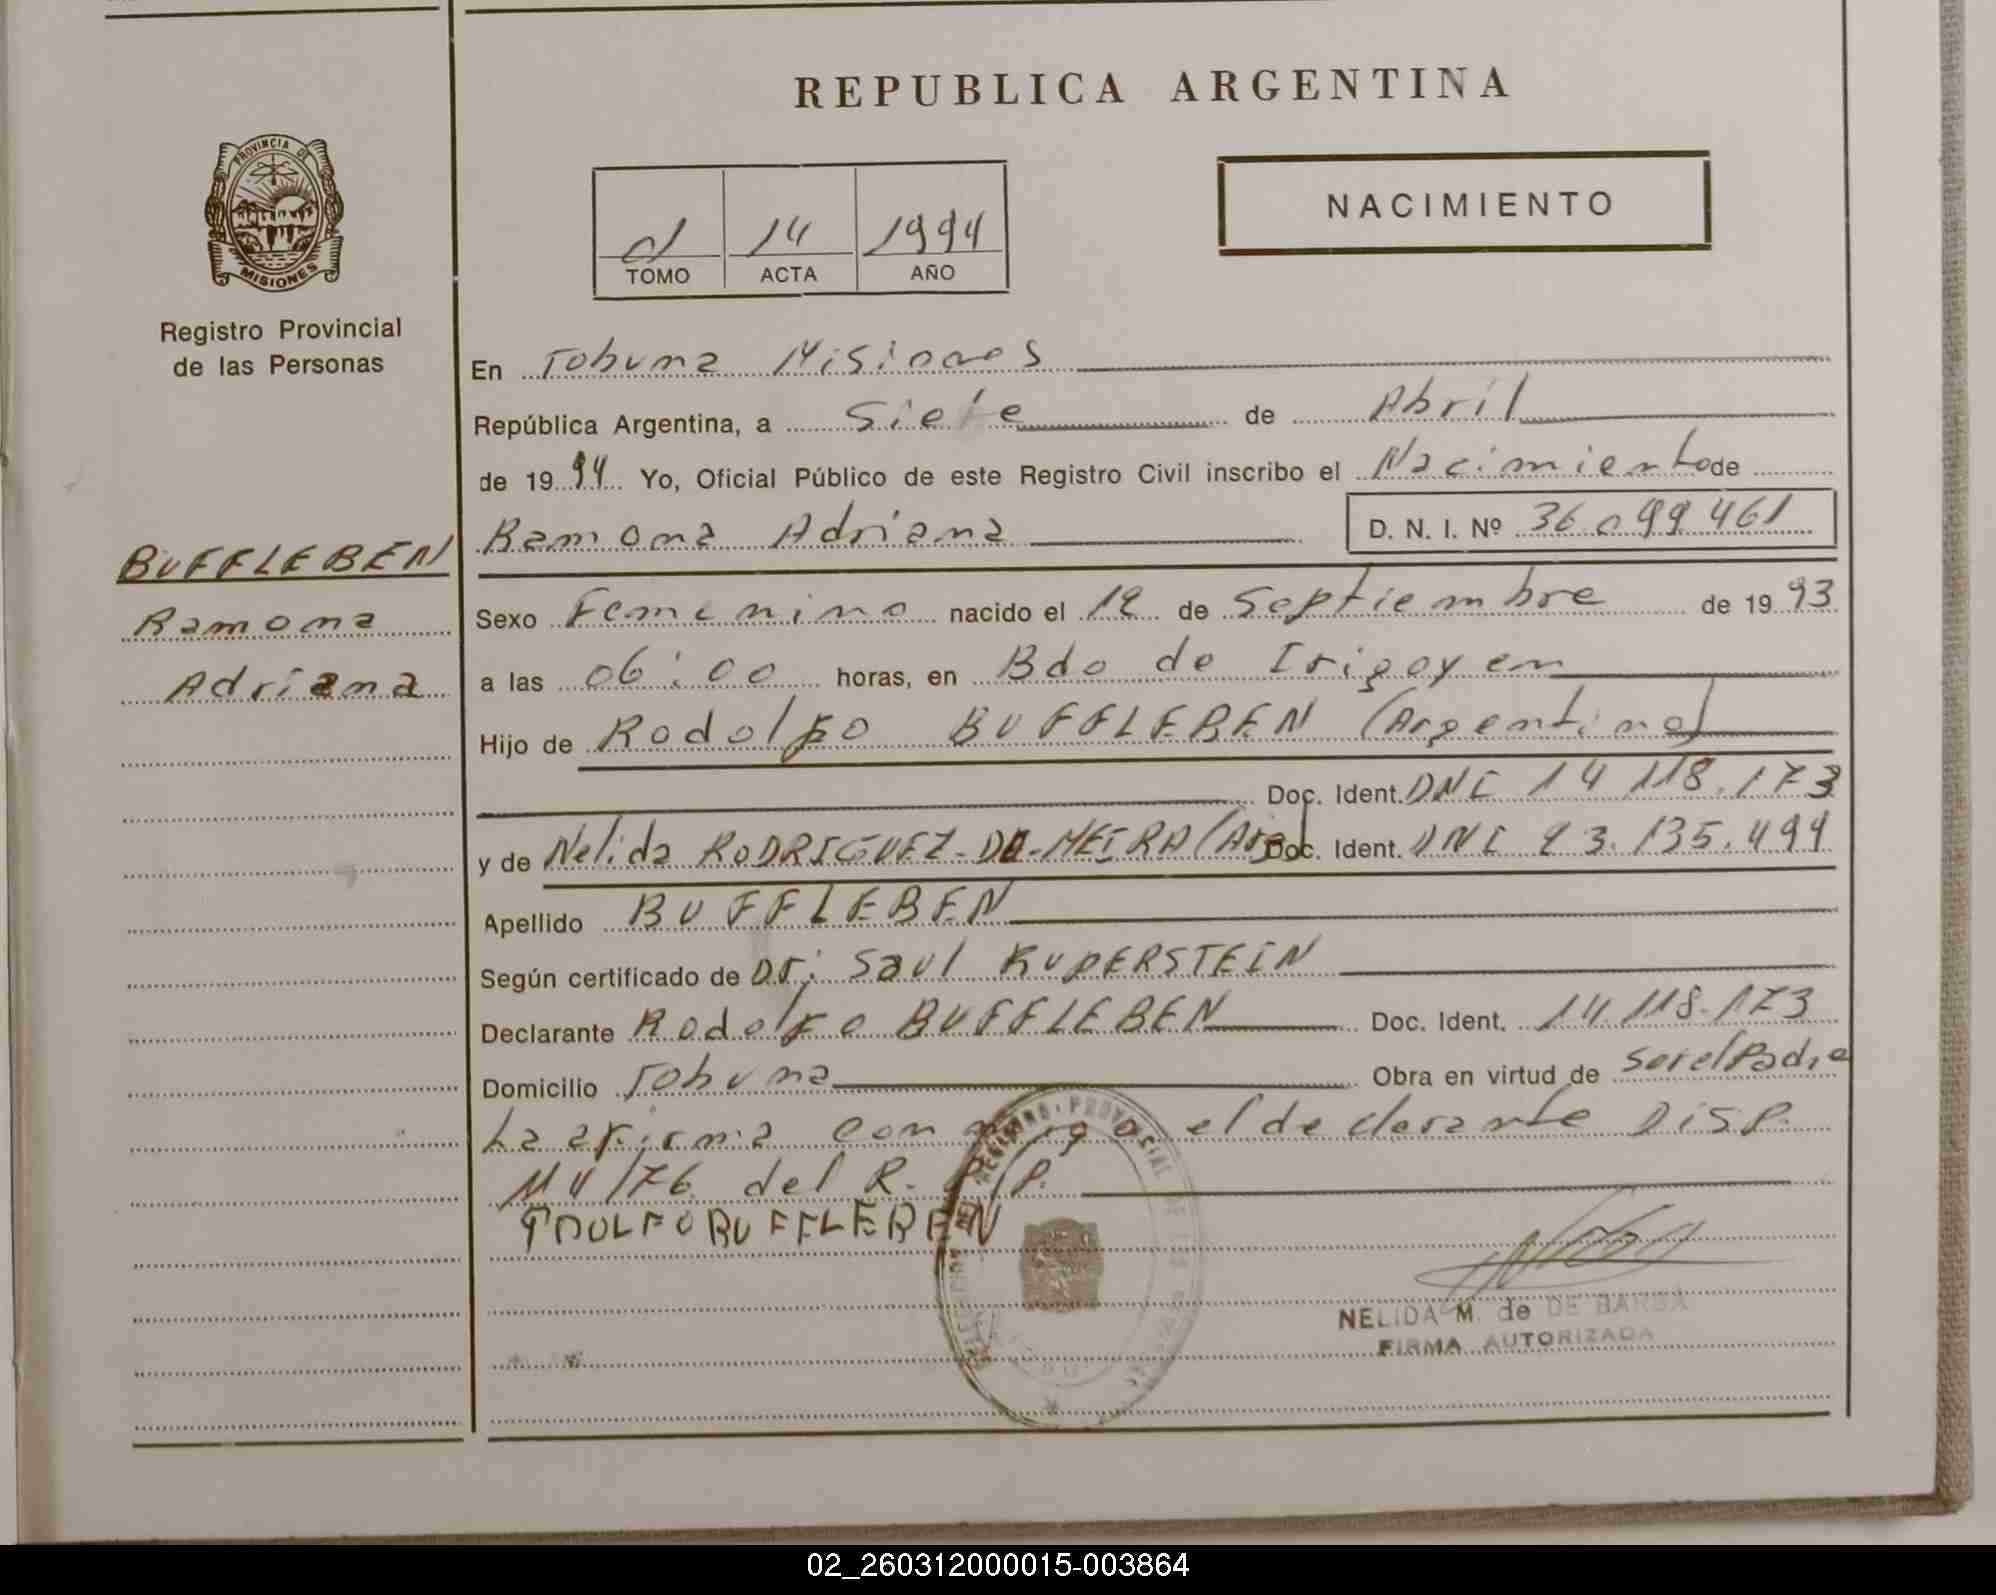 REPUBLICA ARGENTINA
PROVINCIA DE
MISIONES
Registro Provincial
de las Personas
TOMO
14 ACTA
1994 AÑO
NACIMIENTO
En Tobuna Misiones
República Argentina, a Siete de Abril
de 1994 Yo, Oficial Público de este Registro Civil inscribo el Nacimiento de
Ramona Adriana D. N. I. Nº 36.099.461
BUFFLEBEN
Ramona
Adriana
Sexo Femenino nacido el 12 de Septiembre de 1993
a las 06:00 horas, en Bdo de Irigoyen
Hijo de Rodolfo BUFFLEBEN (Argentino)
Doc. Ident. DNI 14.118.173
y de Nelida RODRIGUEZ-DE-MEIRA (Arg Doc. Ident. DNI 23.135.494
Apellido BUFFLEBEN
Según certificado de Dr: Saul RUPERSTEIN
Declarante Rodolfo BUFFLEBEN Doc. Ident. 14.118.173
Domicilio Tobuna Obra en virtud de Ser el Padre
La afirma conmigo el declarante DISP.
114/76 del R. P. P.
BUFFLEBEN
REGISTRO PROVINCIAL DE LAS
NELIDA M. de DE BARBA
FIRMA AUTORIZADA
02_260312000015-003864